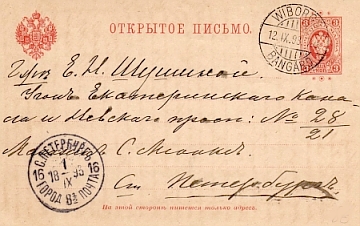 ОТКРЫТОЕ ПИСЬМО.
WIBORG
12.IX.93
BANGÅRD
Е. И. Шушиной.
Уголъ Екатерининскаго Кана-
ла и Невскаго просп: № 28/21
Магазинъ С.
Ст Петербургъ.
С.ПЕТЕРБУРГЪ
16 1 16
IX
ГОРОД. ПОЧТА
На этой сторонѣ пишется только адресъ.